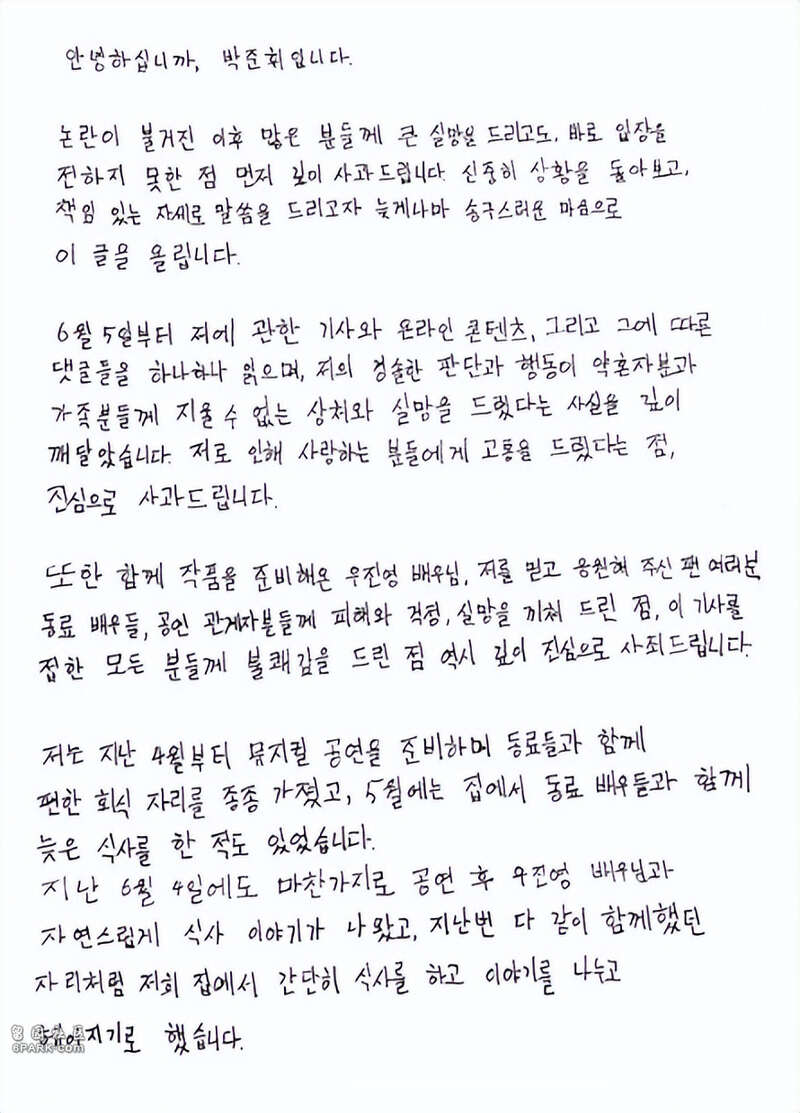 안녕하십니까, 박준휘입니다.
논란이 불거진 이후 많은 분들께 큰 실망을 드리고도, 바로 입장을
전하지 못한 점 먼저 깊이 사과드립니다. 신중히 상황을 돌아보고,
책임 있는 자세로 말씀을 드리고자 늦게나마 송구스러운 마음으로
이 글을 올립니다.
6월 5일부터 저에 관한 기사와 온라인 콘텐츠, 그리고 그에 따른
댓글들을 하나하나 읽으며, 저의 경솔한 판단과 행동이 약혼자분과
가족분들께 지울 수 없는 상처와 실망을 드렸다는 사실을 깊이
깨달았습니다. 저로 인해 사랑하는 분들에게 고통을 드렸다는 점,
진심으로 사과드립니다.
또한 함께 작품을 준비해온 우진영 배우님, 저를 믿고 응원해 주신 팬 여러분
동료 배우들, 공인 관계자분들께 피해와 걱정, 실망을 끼쳐 드린 점, 이 기사를
접한 모든 분들께 불쾌감을 드린 점 역시 깊이 진심으로 사죄드립니다.
저는 지난 4월부터 뮤지컬 공연을 준비하며 동료들과 함께
편한 회식 자리를 종종 가졌고, 5월에는 집에서 동료 배우들과 함께
늦은 식사를 한 적도 있었습니다.
지난 6월 4일에도 마찬가지로 공연 후 우진영 배우님과
자연스럽게 식사 이야기가 나왔고, 지난번 다 같이 함께했던
자리처럼 저희 집에서 간단히 식사를 하고 이야기를 나누고
지기로 했습니다.
6PARK.com